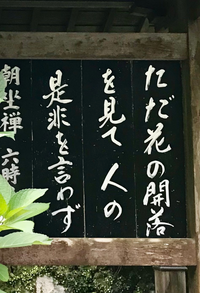 ただ花の開落
を見て 人の
是非を言わず
朝坐禅 六時